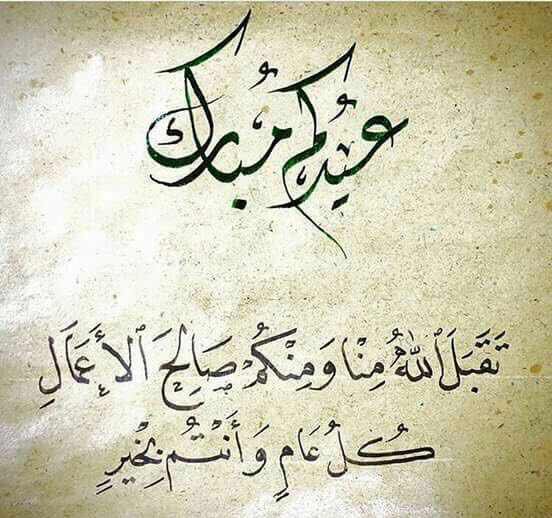 عيدكم مُبارك
تَقَبَلَ ٱللهُ مِنا وَمِنْكُمْ صَالِحَ ٱلأَعمَالِ
كُلُ عَامٍ وَأَنْتُم بِخَيْرٍ